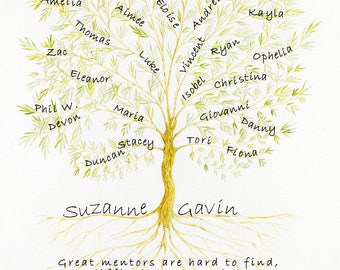 Amelia
Aimee
Eloise
Andre
Kayla
Thomas
Zac
Luke
Vincent
Ryan
Ophelia
Eleanor
Isobel
Christina
Phil W.
Devon
Maria
Giovanni
Danny
Stacey
Tori
Duncan
Fiona
Suzanne Gavin
Great mentors are hard to find,